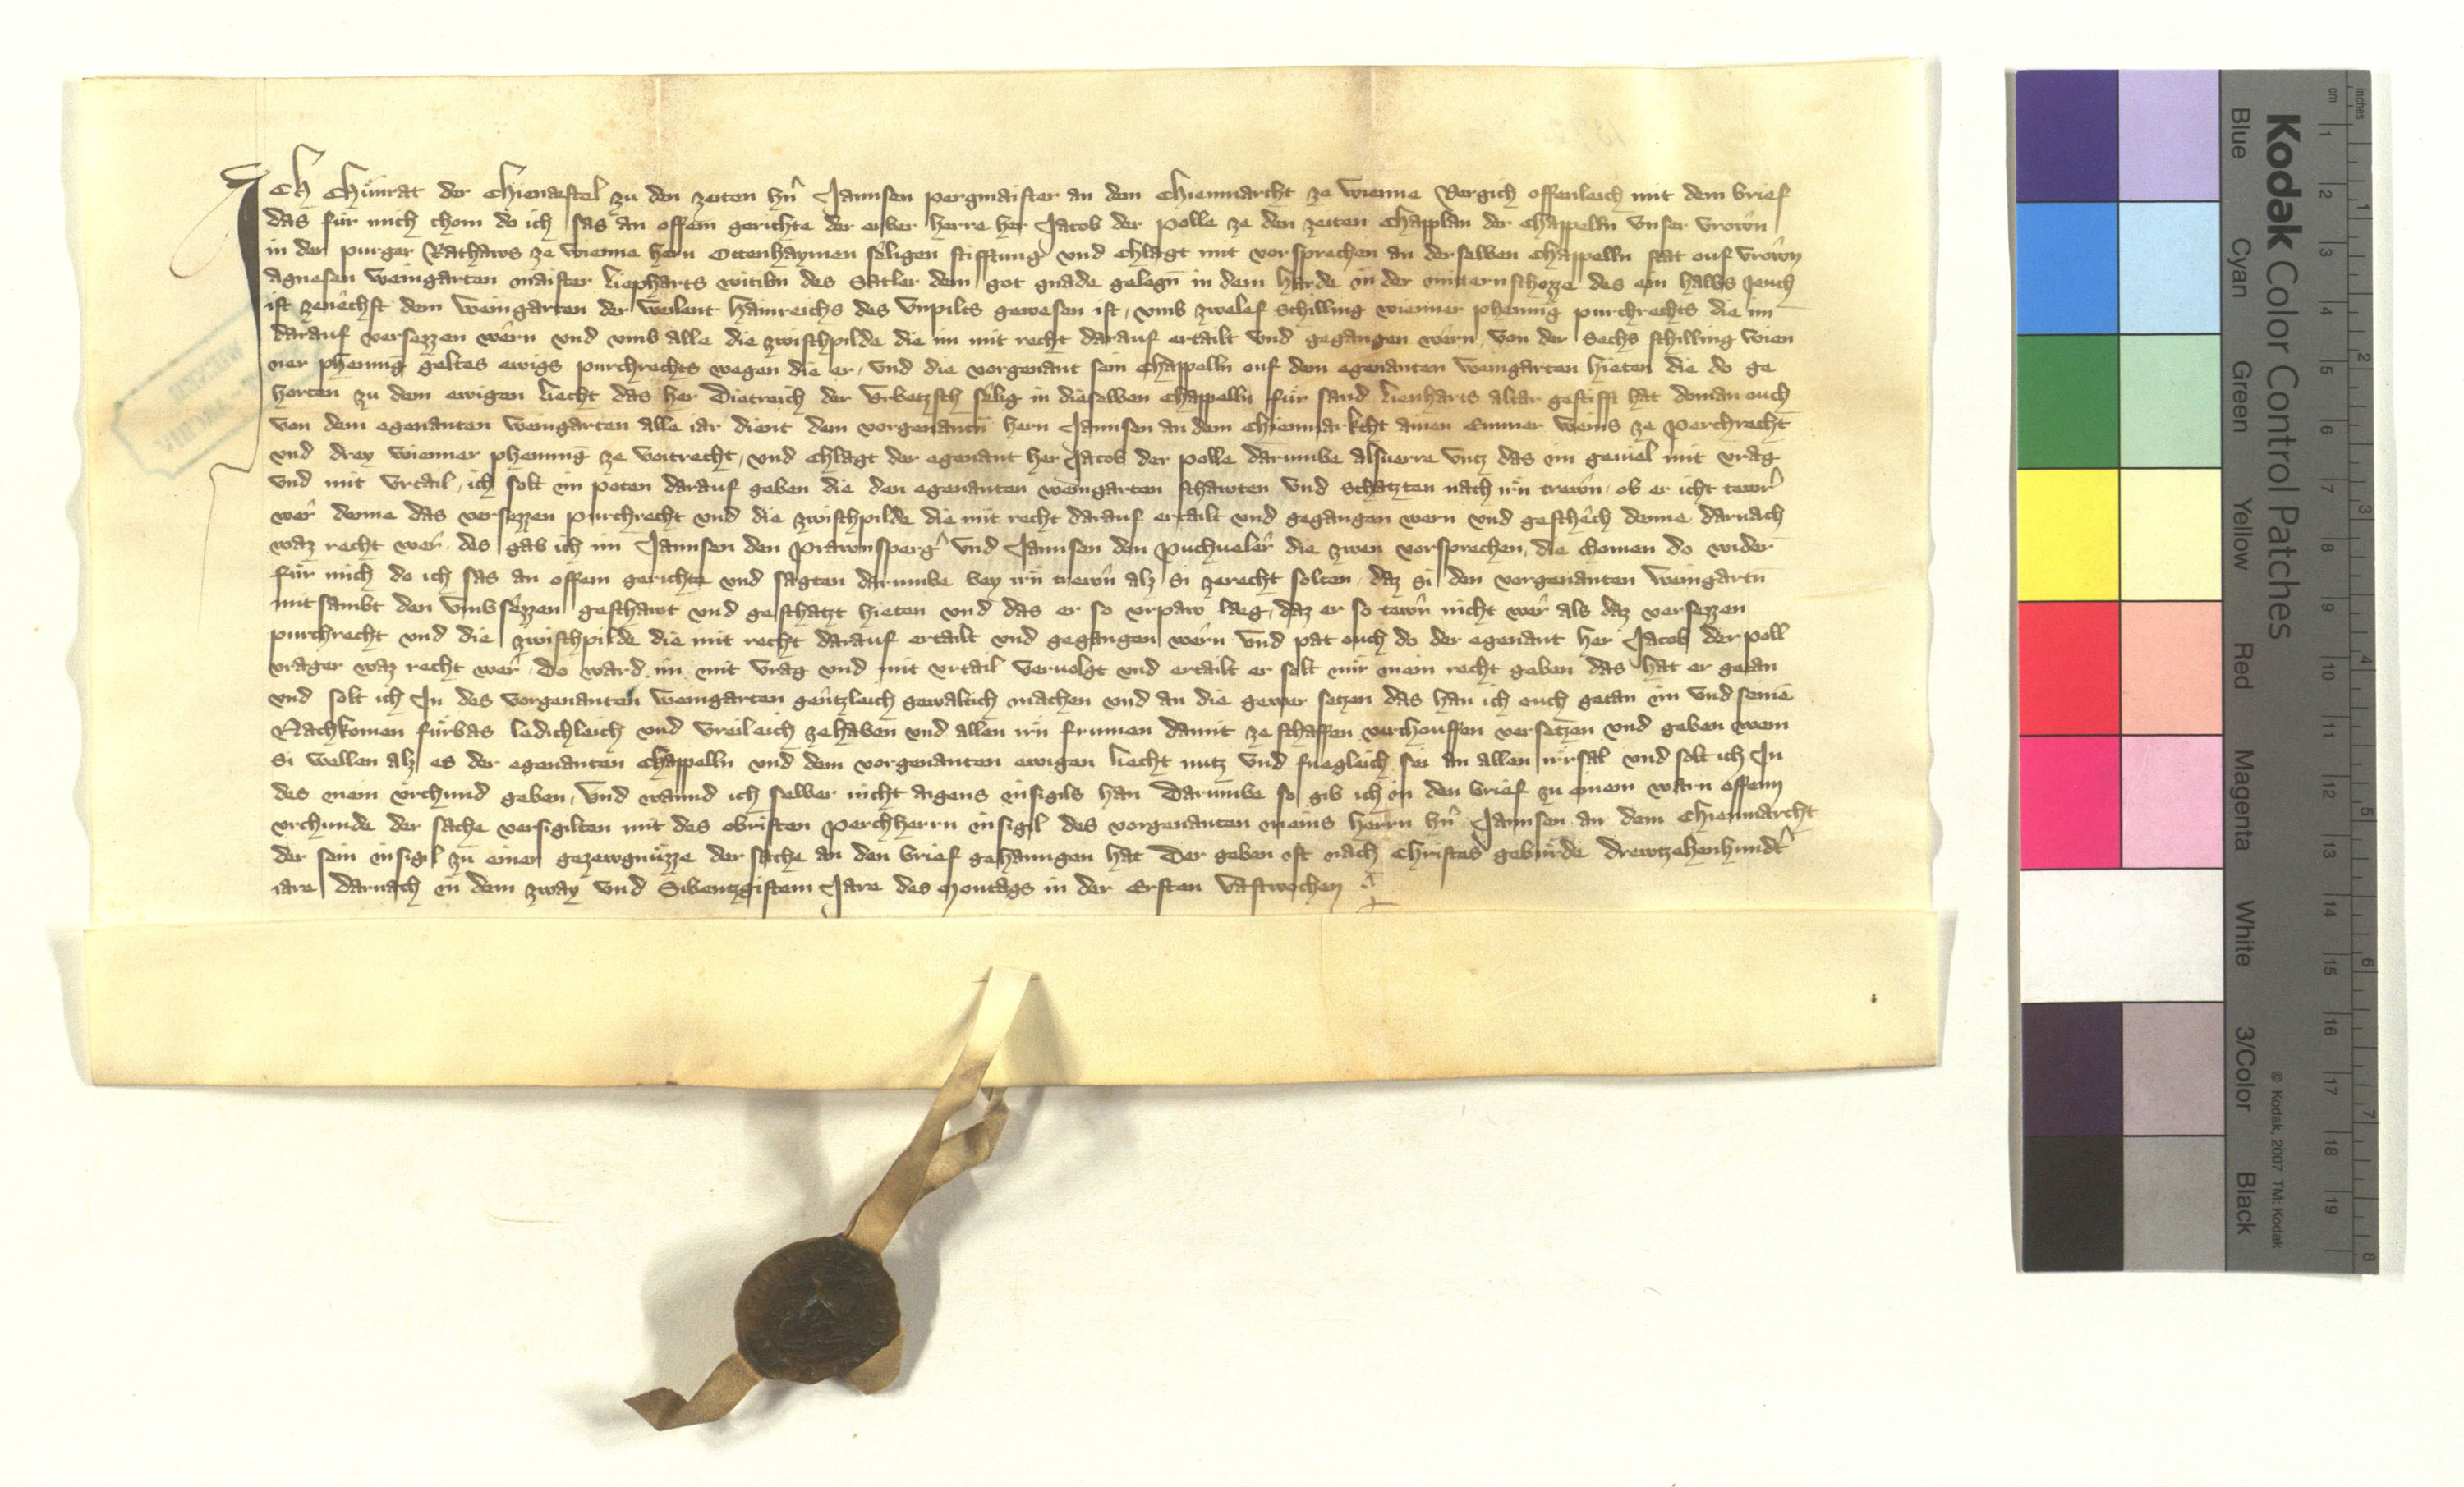 Ich Chunrat der Chienastel zu den zeiten hern Jannsen pergmaister an dem Chienmarcht ze wienne Vergich offenleich mit dem brief
das für mich chom do ich sas an offem gerichte der erber herre her Jacob der polle ze den zeiten Chapplan der Chappelln Unser vrown
in der purger Rathaws ze wienne hern Ottenhaymen seligen stifftung und chlagt mit vorsprechen an derselben Chappelln stat ouf vrown
Agnesen weingarten maister liepharts witibn des Satler dem got gnade gelegn in dem harde in der mitternschozze des ein halbs Jeuch
ist zenechst dem weingarten der weilent hainreichs des Unpilts gewesen ist, umb zwelef schilling wienner phennig purchrechts die im
darauf versezzen wern und umb alle die zwischpilde die im mit recht darauf ertailt und gegangen wern von der Sechs schilling wien
ner phennig geltes ewigs purchrechts wegen die er, und die vorgenant sein Chappelln ouf dem egenanten weingarten hieten die do ge
horten zu dem ewigen liecht das her Dietreich der Urbetzsch selig in dieselben Chappelln für sand lienharts altar gestifft hat doman ouch
von dem egenanten weingarten alle iar dient dem vorgenantn hern Jannsen an dem Chienmarkcht ainen Emmer weins ze perchrecht
und drey wienner phennig ze voitrecht, und chlagt der egenant her Jacob der polle darumbe alsuerre untz das im geuiel mit vrag
und mit vrtail, ich solt im poten darauf geben die den egenanten weingarten schawten und schatzten nach irn trewn, ob er icht tewr
wer denne das versezzen purchrecht und die zwischpilde die mit recht darauf ertailt und gegangen wern und geschech denne darnach
waz recht wer, des gab ich im Jannsen den prawnsperger und Jannsen den puchueler die zwen vorsprechen, die chomen do wider
für mich do ich sas an offem gerichte und sagten darumbe bey irn trewn alz si zerecht solten, daz si den vorgenanten weingartn
mitsambt den umbsezzen geschawt und geschatzt hieten und das er so vrpaw laeg, daz er so tewr nicht wer als daz versezzen
purchrecht und die zwischpilde die mit recht darauf ertailt und gegangen wern und pat ouch do der egenant her Jacob der poll
vrager waz recht wer, do ward im mit vrag und mit vrtail veruolgt und ertailt er solt mir mein recht geben das hat er getan
und solt ich In des vorgenanten weingarten gentzleich gewaltich machen und an die gewer setzen das han ich ouch getan im und seinē
Nachkomen fürbas ledichleich und vreileich zehaben und allen irn frumen damit ze schaffen verchouffen versetzen und geben wem
si wellen alz es der egenanten Chappelln und dem vorgenanten ewigen liecht nutz und fuegleich sei an allen irrsal und solt ich In
des mein vrchund geben, und wannd ich selber nicht aigens insigils han Darumbe so gib ich in den brief zu einem warn offenn
vrchunde der sache versigilten mit des obristen perchherrn insigil des vorgenanten meins herrn hern Jannsen an dem Chienmarcht
der sein insigil zu einer gezewgnüzze der sache an den brief gehanngen hat Der geben ist nach Christes gebürde drewtzehenhundert
iare darnach in dem zway und Sibentzgistem Jare des Montags in der Ersten vastwochen
Kodak Color Control Patches
Blue Cyan Green Yellow Red Magenta White 3/Color Black
© Kodak, 2007 TM: Kodak
cm 1 2 3 4 5 6 7 8 9 10 11 12 13 14 15 16 17 18 19
inches 1 2 3 4 5 6 7 8